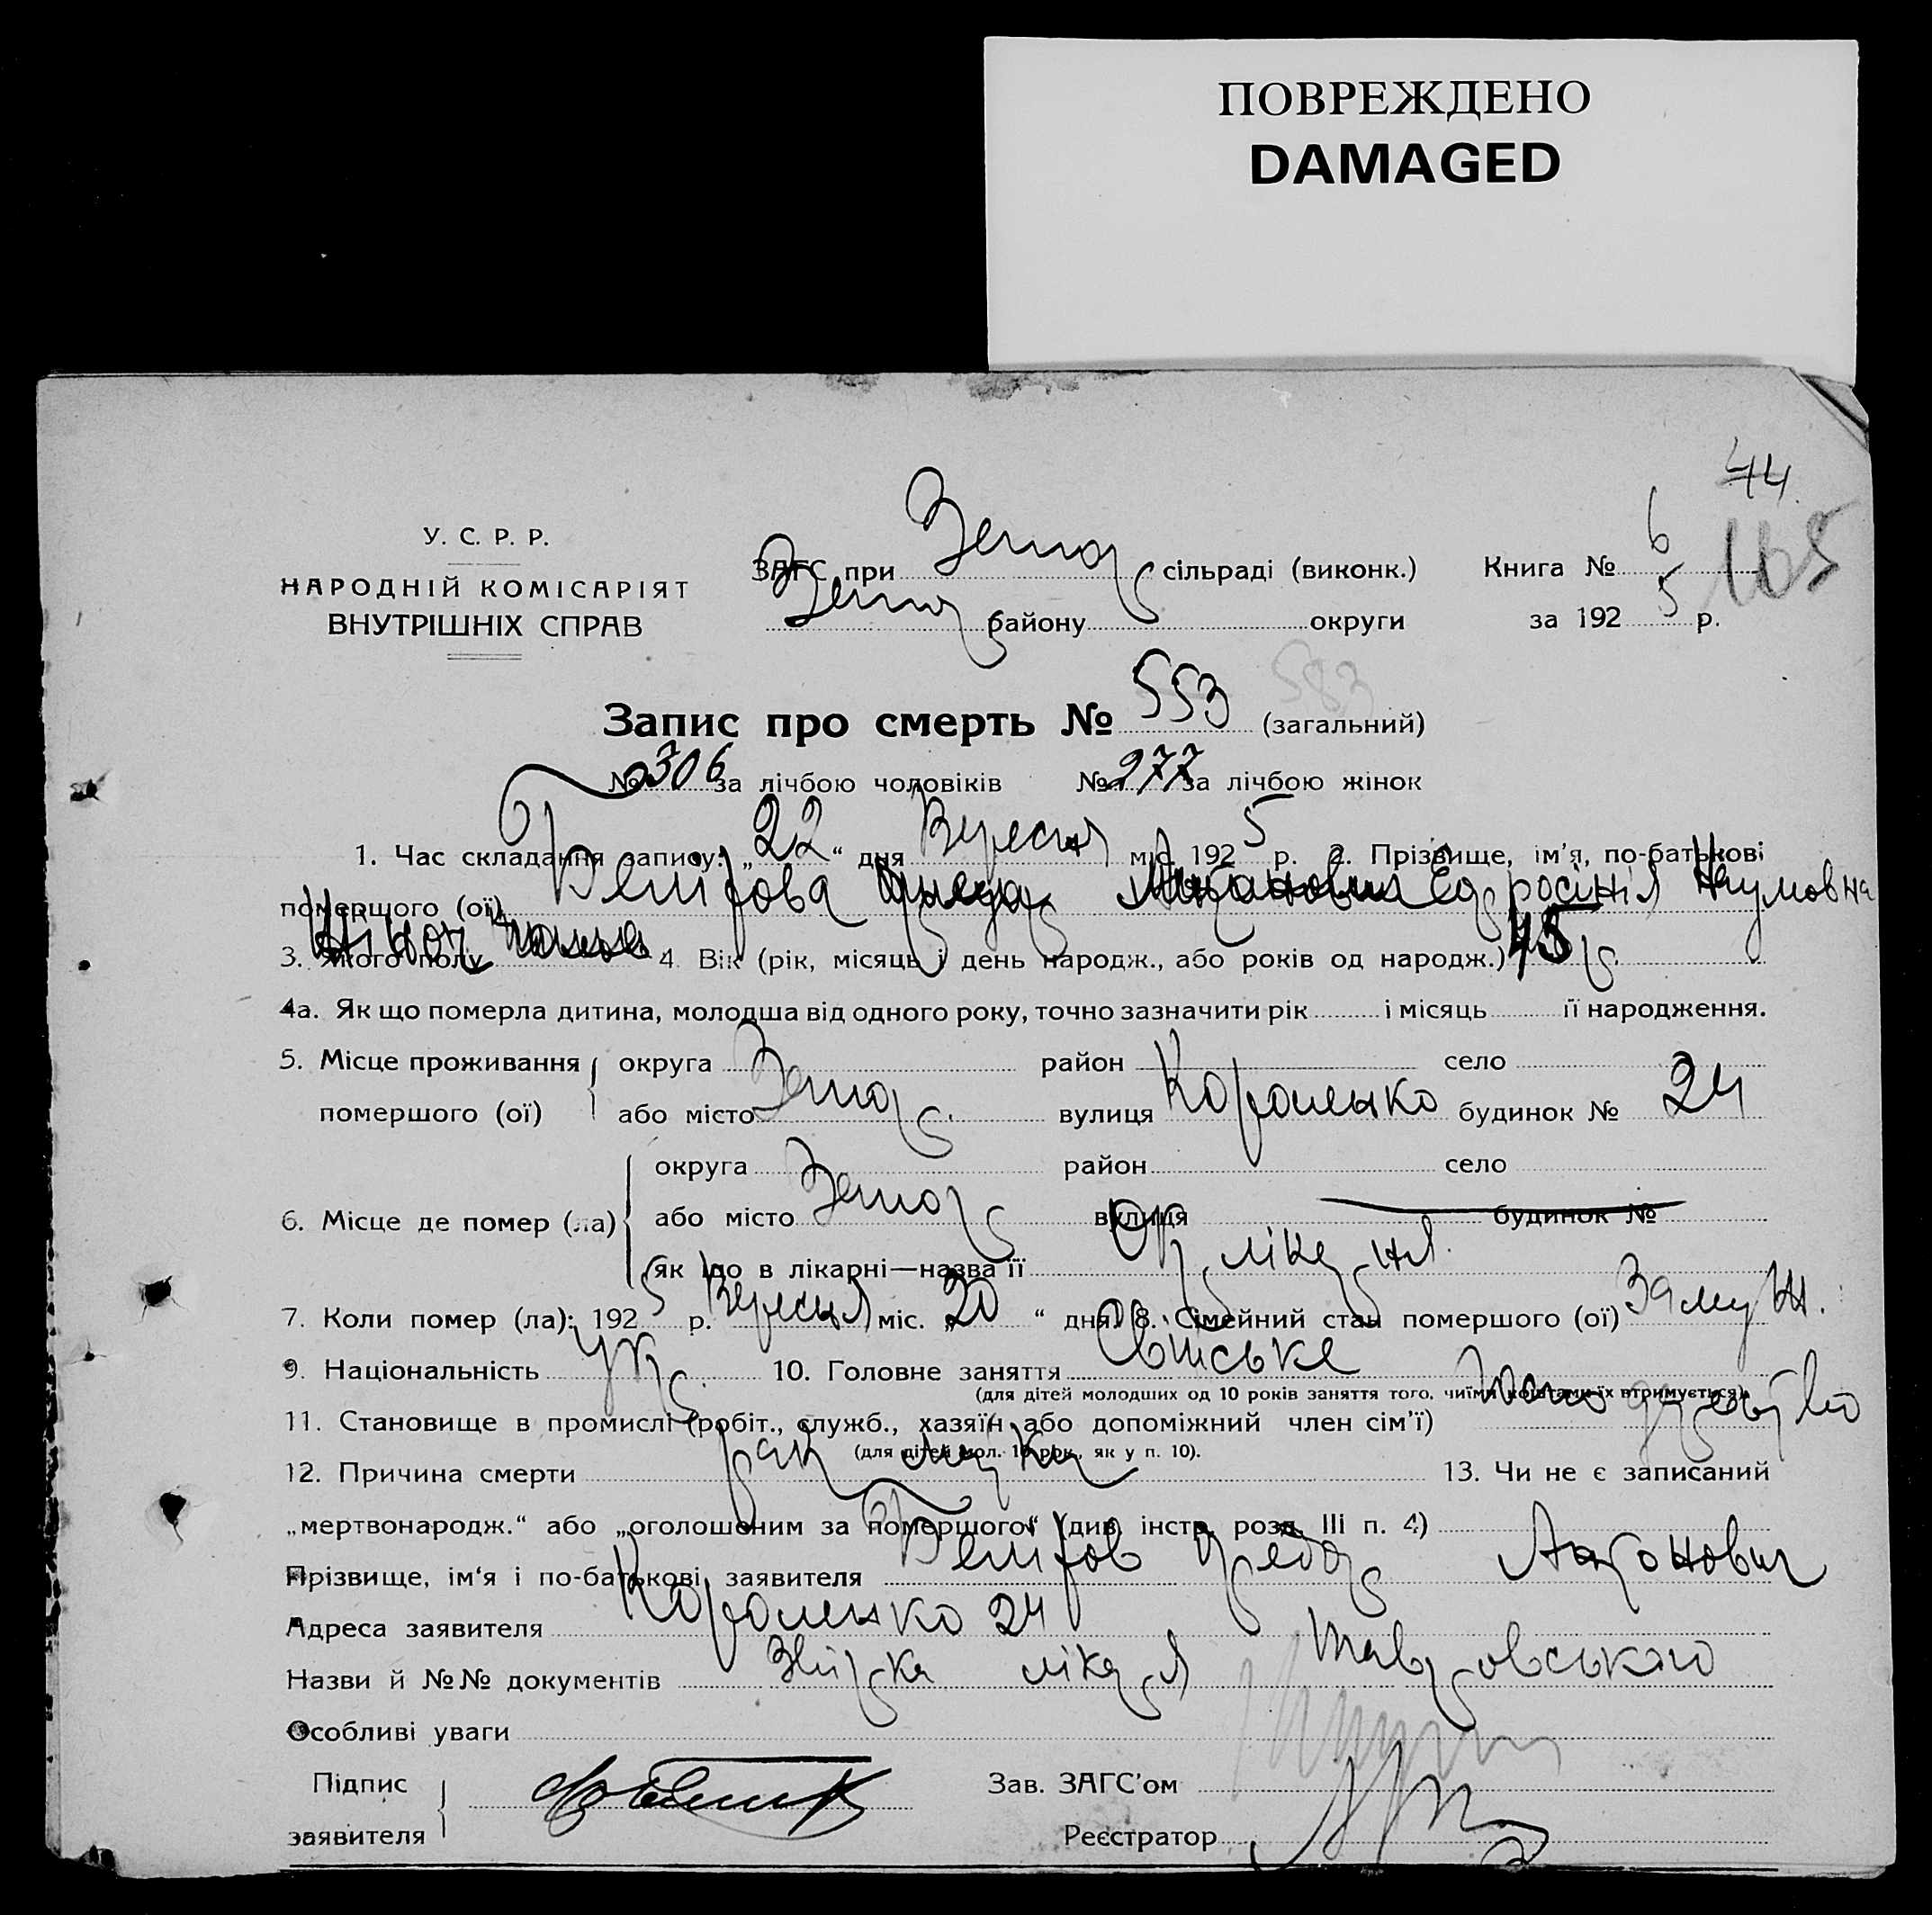 ПОВРЕЖДЕНО
DAMAGED
44
165
У. С. Р. Р.
НАРОДНІЙ КОМІСАРІЯТ
ВНУТРІШНІХ СПРАВ
ЗАГС при сільраді (виконк.) Книга № 6
району округи за 192 5 р.
Запис про смерть № 553 (загальний) 583
№ 306 за лічбою чоловіків № 277 за лічбою жінок
1. Час складання запису: „ 22 “ дня Вересня міс. 192 5 р. 2. Прізвище, ім’я, по-батькові
помершого (ої) Наумовна
3. Якого полу Жіноч 4. Вік (рік, місяць і день народж., або років од народж.) 45 р.
4а. Як що померла дитина, молодша від одного року, точно зазначити рік і місяць її народження.
5. Місце проживання округа район село
помершого (ої) або місто вулиця Короленко будинок № 24
округа район село
6. Місце де помер (ла) або місто вулиця будинок №
як що в лікарні—назва її Окр лікарня
7. Коли помер (ла): 192 5 р. Вересня міс. „ 20 “ дня. 8. Сімейний стан помершого (ої) Замуж.
9. Національність Укр. 10. Головне заняття
(для дітей молодших од 10 років заняття того, чиїми коштами їх втримується)
11. Становище в промислі (робіт., служб., хазяїн або допоміжний член сім’ї)
(для дітей мол. 10 рок., як у п. 10).
12. Причина смерти рак 13. Чи не є записаний
„мертвонародж.“ або „оголошеним за помершого“ (див. інстр. розд. III п. 4)
Прізвище, ім‘я і по-батькові заявителя
Адреса заявителя Короленко 24
Назви й №№ документів лікаря
Особливі уваги
Підпис Зав. ЗАГС’ом
заявителя Реєстратор